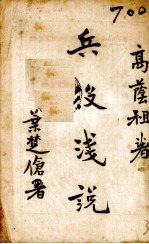 700
高蔭祖著
兵役浅説
葉楚傖署